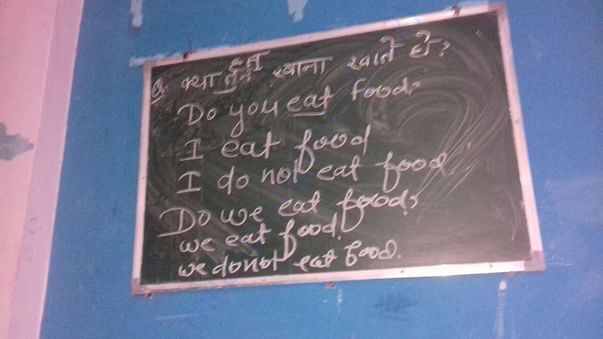 हम
Q. क्या तुम खाना खाते हो?
Do you eat food?
I eat food
I do not eat food.
Do we eat food?
we eat food.
we do not eat food.